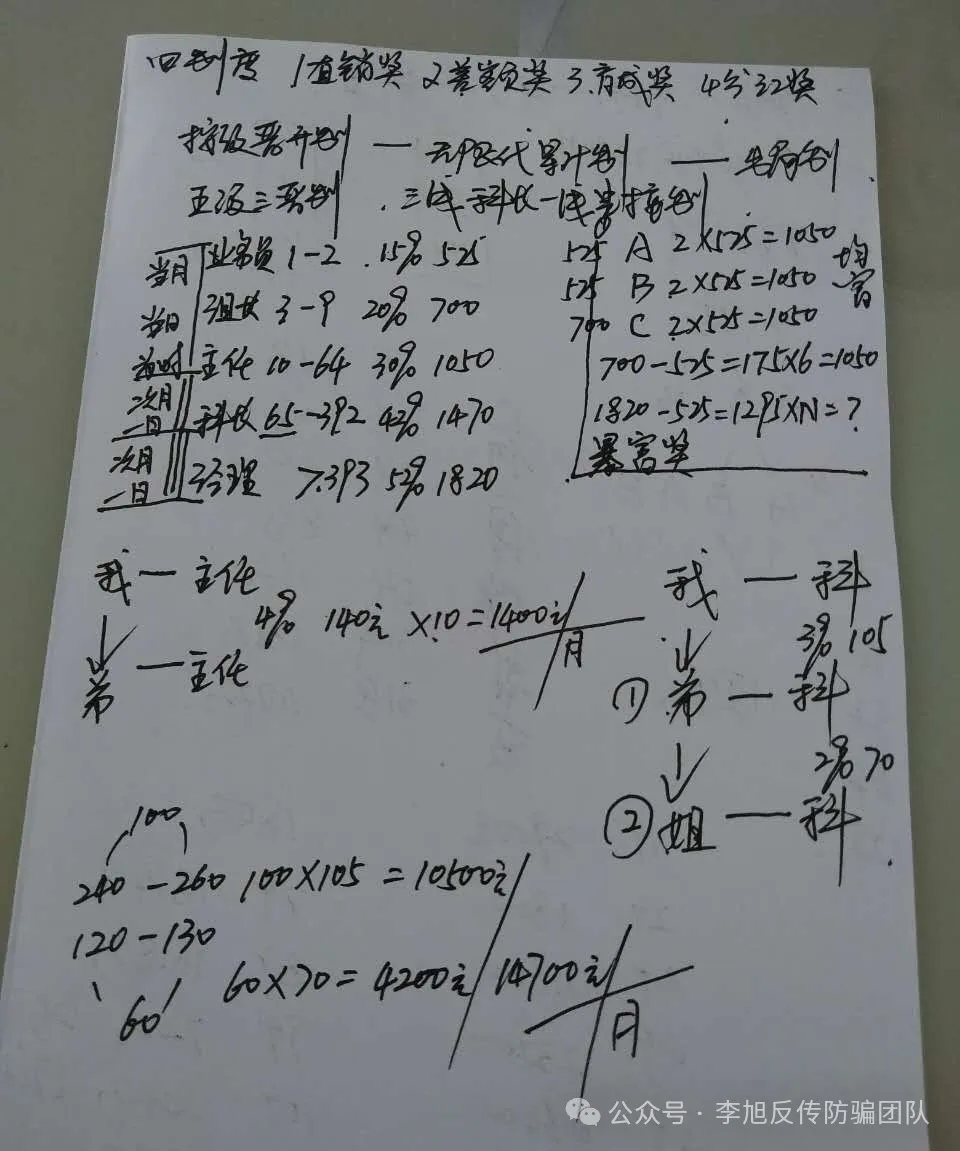 四制度 1直销奖 2差额奖 3.育成奖 4分红奖
按级晋升制 — 无限代累计制 — 出局制
五级三晋制 . 三线科长一线業接制
当月 业务员 1-2 .15% 525
当日 组长 3-9 20% 700
当时 主任 10-64 30% 1050
次月一日 科长 65--392 42% 1470
次月一日 经理 >.393 52% 1820
525 A 2×525=1050 均富
525 B 2×525=1050
700 C 2×525=1050
700-525=175×6=1050
1820-525=1295×N=?
暴富奖
我 — 主任
4% 140元 ×10=1400元/月
弟 — 主任
我 — 科
3% 105
① 弟 — 科
2% 70
② 姐 — 科
100
240-260 100×105=10500元
120-130
60×70=4200元 14700元/月
60
公众号·李旭反传防骗团队